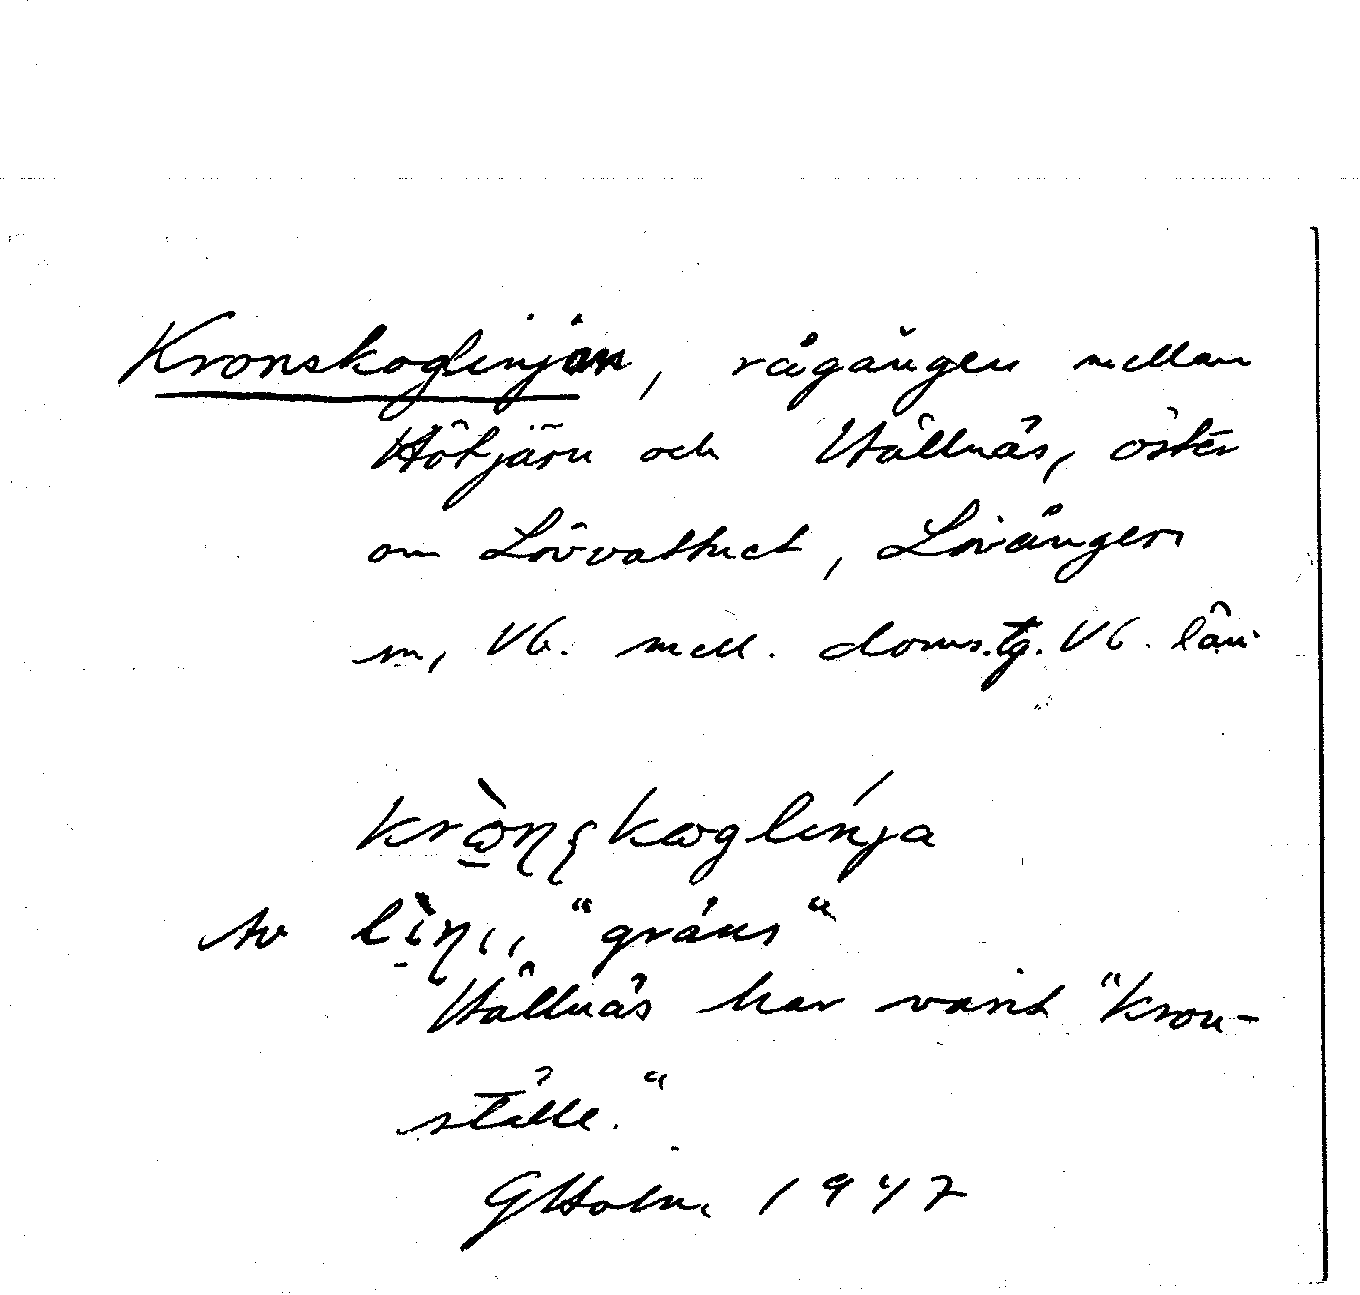 Kronskoglinjan, rågången mellan
Hötjärn och Hällnäs, öster
om Lövvattnet, Lövångers
sn, Vb. mell. doms.tg. Vb. län
krò̱ŋʂkωglínja
Av lì̱ɳι, "gräns"
Hällnäs har varit "kron-
ställe."
GHolm. 1947